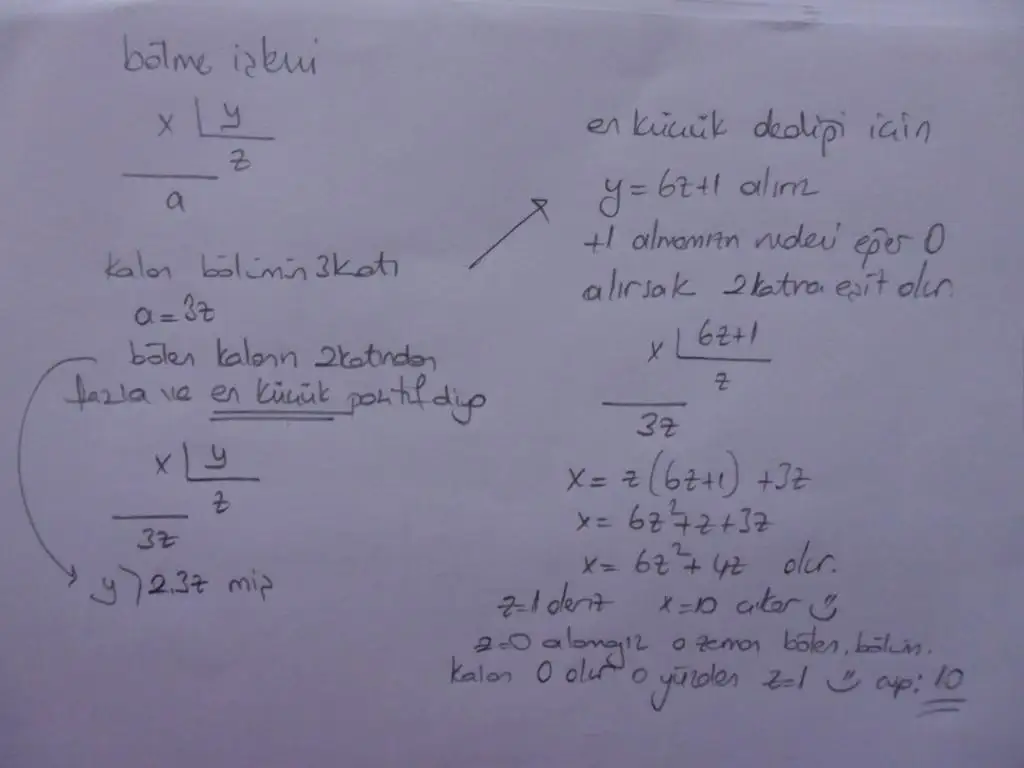 bölme işlemi
x y
z
a
kalan bölümün 3 katı
a=3z
bölen kalanın 2 katından
fazla ve en küçük pozitif diyo
x y
z
3z
y>2.3z miş
en küçük dediği için
y=6z+1 alırız
+1 almamızın nedeni eğer 0
alırsak 2 katına eşit olur.
x 6z+1
z
3z
x= z(6z+1) +3z
x= 6z²+z+3z
x= 6z²+4z olur.
z=1 deriz x=10 çıkar
z=0 alamayız o zaman bölen, bölün.
kalan 0 olur o yüzden z=1 cvp: 10